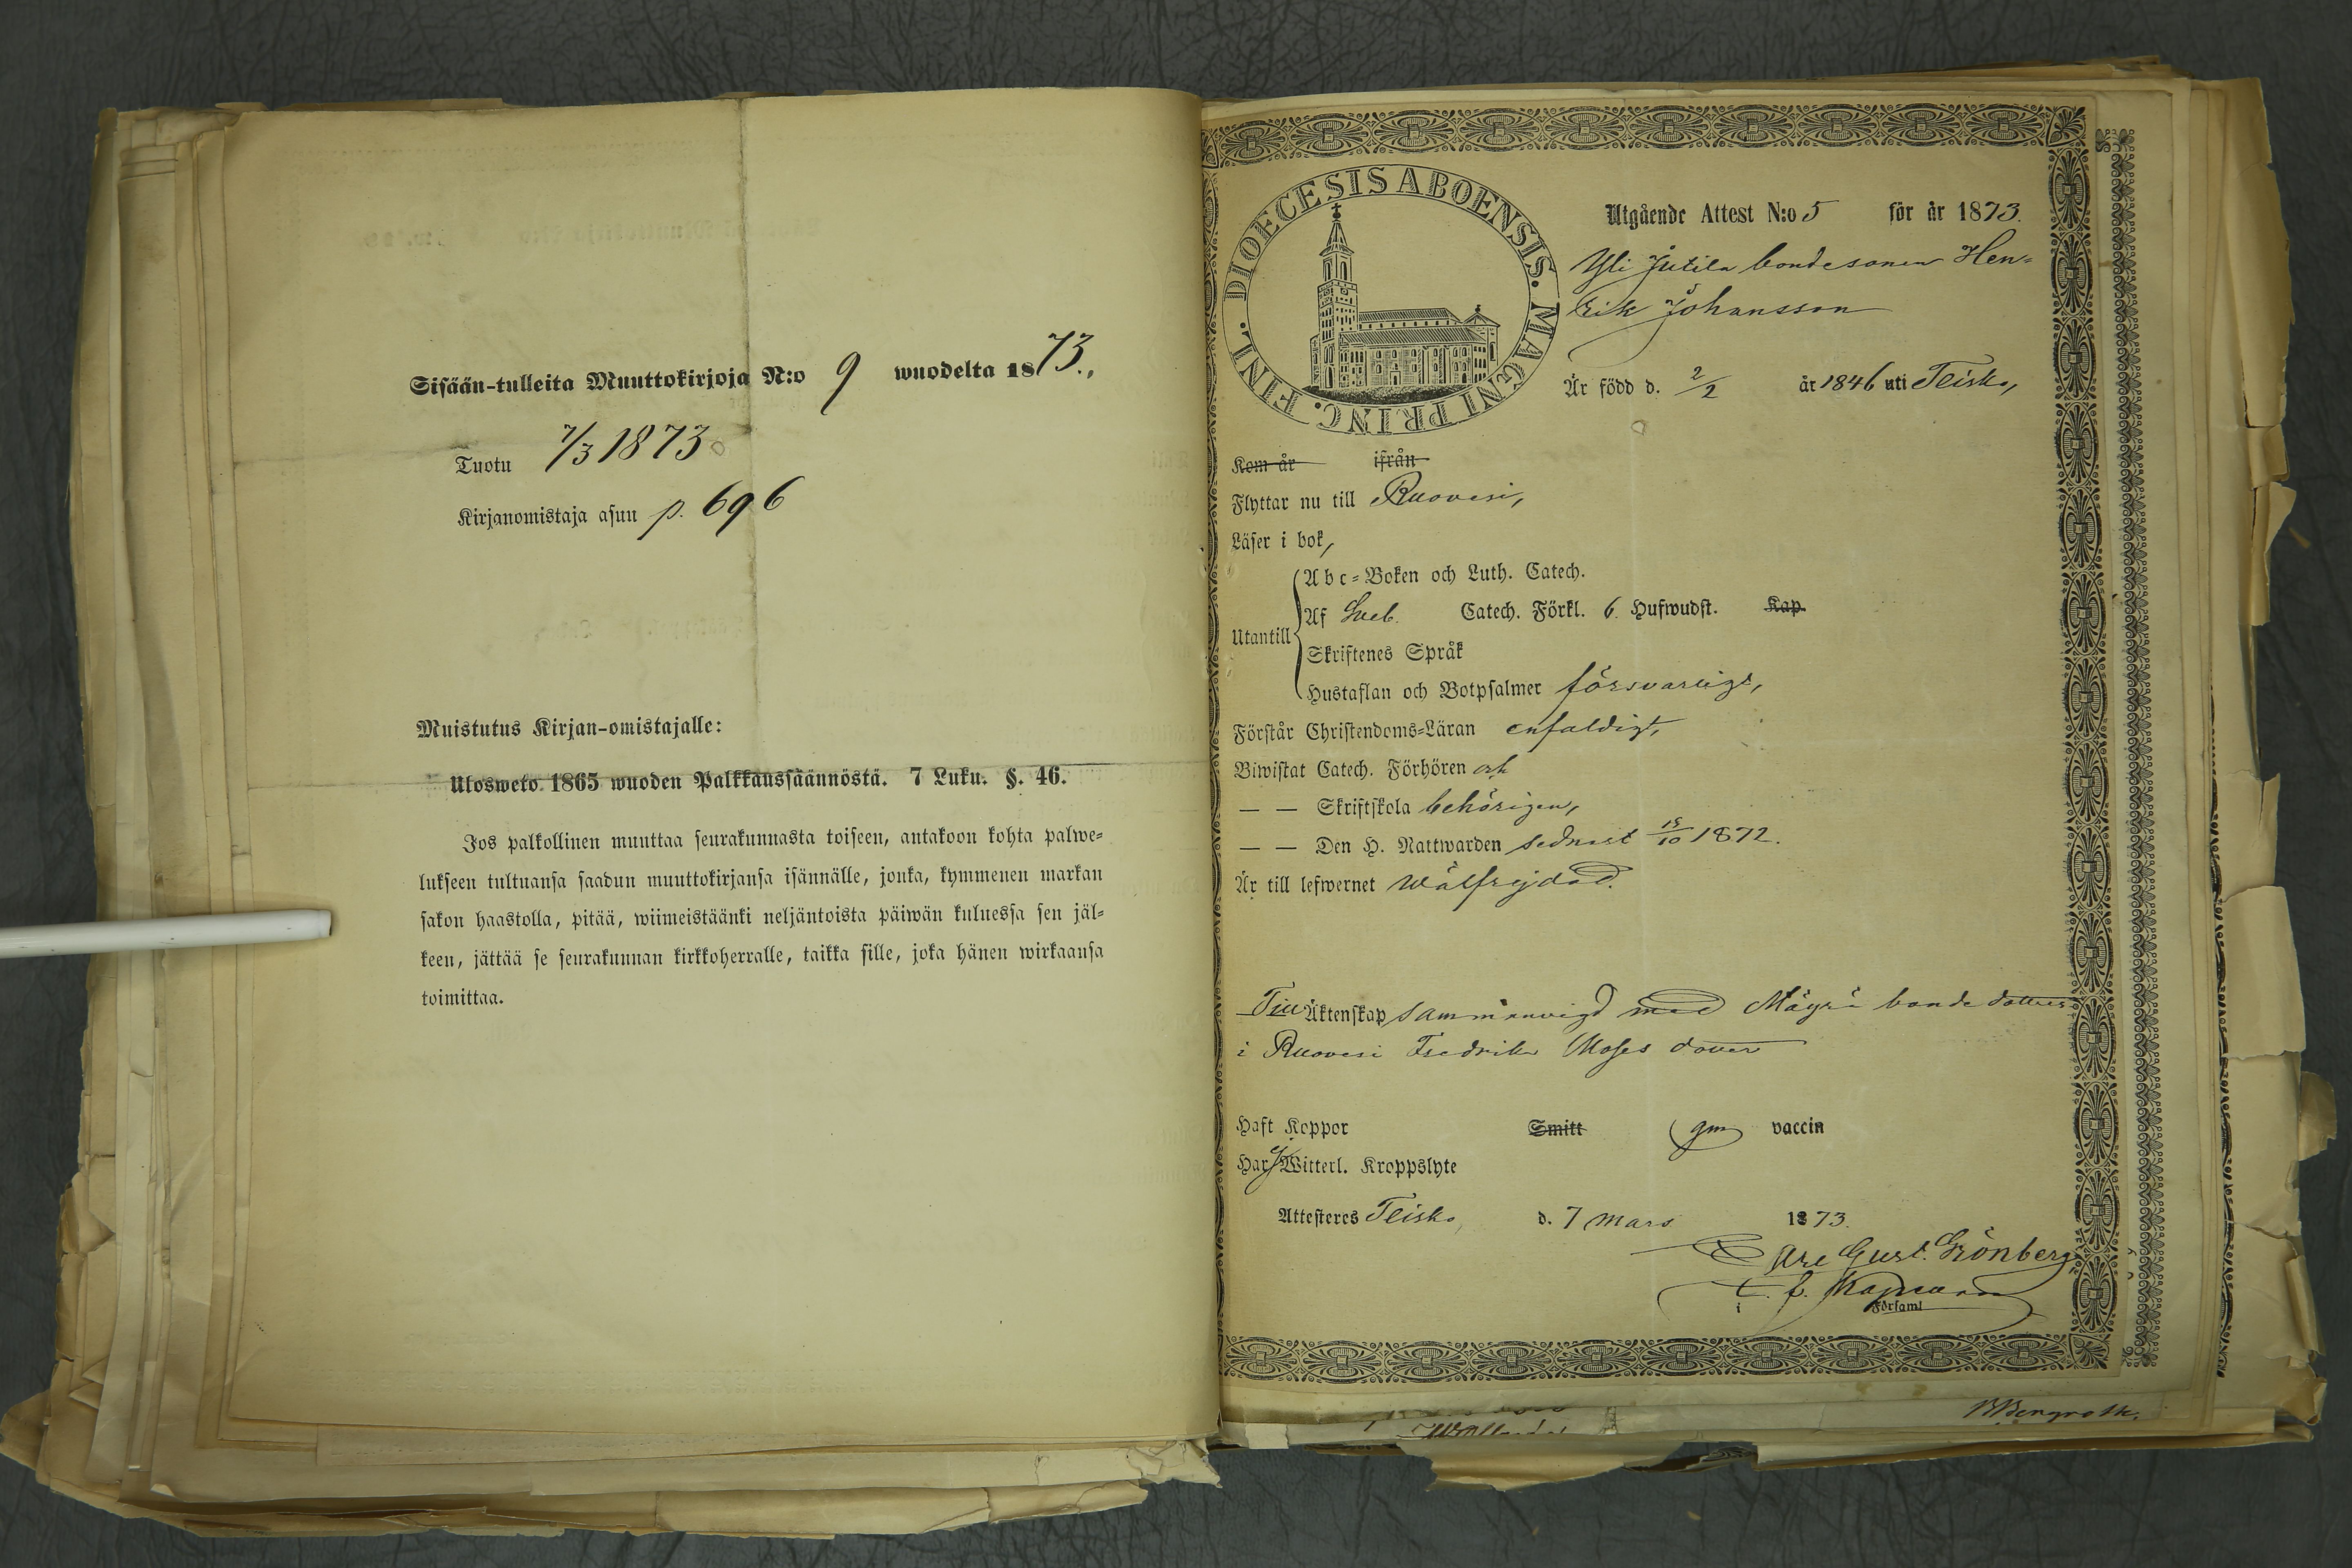 Sisään-tulleita Muuttokirjoja N:o 9 wuodelta 1873.,
Tuotu 7/3 1873
Kirjanomistaja asuu p. 696
Muistutus Kirjan-omistajalle:
Ulosweto 1865 wuoden Palkkaussäännöstä. 7 Luku. §. 46.
Jos palkollinen muuttaa seurakunnasta toiseen, antakoon kohta palwe-
lukseen tultuansa saadun muuttokirjansa isännälle, jonka, kymmenen markan
sakon haastolla, pitää, wiimeistäänki neljäntoista päiwän kuluessa sen jäl-
keen, jättää se seurakunnan kirkkoherralle, taikka sille, joka hänen wirkaansa
toimittaa.
DIOECESIS ABOENSIS. MAGNI PRINC. FINL.
Utgående Attest N:o 5 för år 1873.
Yli Jutila bondesonen Hen-
rik Johansson
Är född d. 2/2 år 1846 uti Teisko,
Kom år ifrån
Flyttar nu till Ruovesi,
Läser i bok,
Utantill
Abc-Boken och Luth. Catech.
Af Sveb. Catech. Förkl. 6. Hufwudst. Kap.
Skriftenes Språk
Hustaflan och Botpsalmer försvarligt,
Förstår Christendoms-Läran enfaldigt,
Biwistat Catech. Förhören och
— — Skriftskola behörigen,
— — Den H. Nattwarden sednast 15/10 1872.
Är till lefwernet wälfrejdad.
Till Äktenskap sammanvigd med Mäyrä bondedotter
i Ruovesi Fredrika Moses dotter
Haft Koppor Smitt gm vaccin
Har ej Witterl. Kroppslyte
Attesteres Teisko, d. 7 mars 1873.
Carl Gust. Grönberg
t. f. Kapellan
i Församl